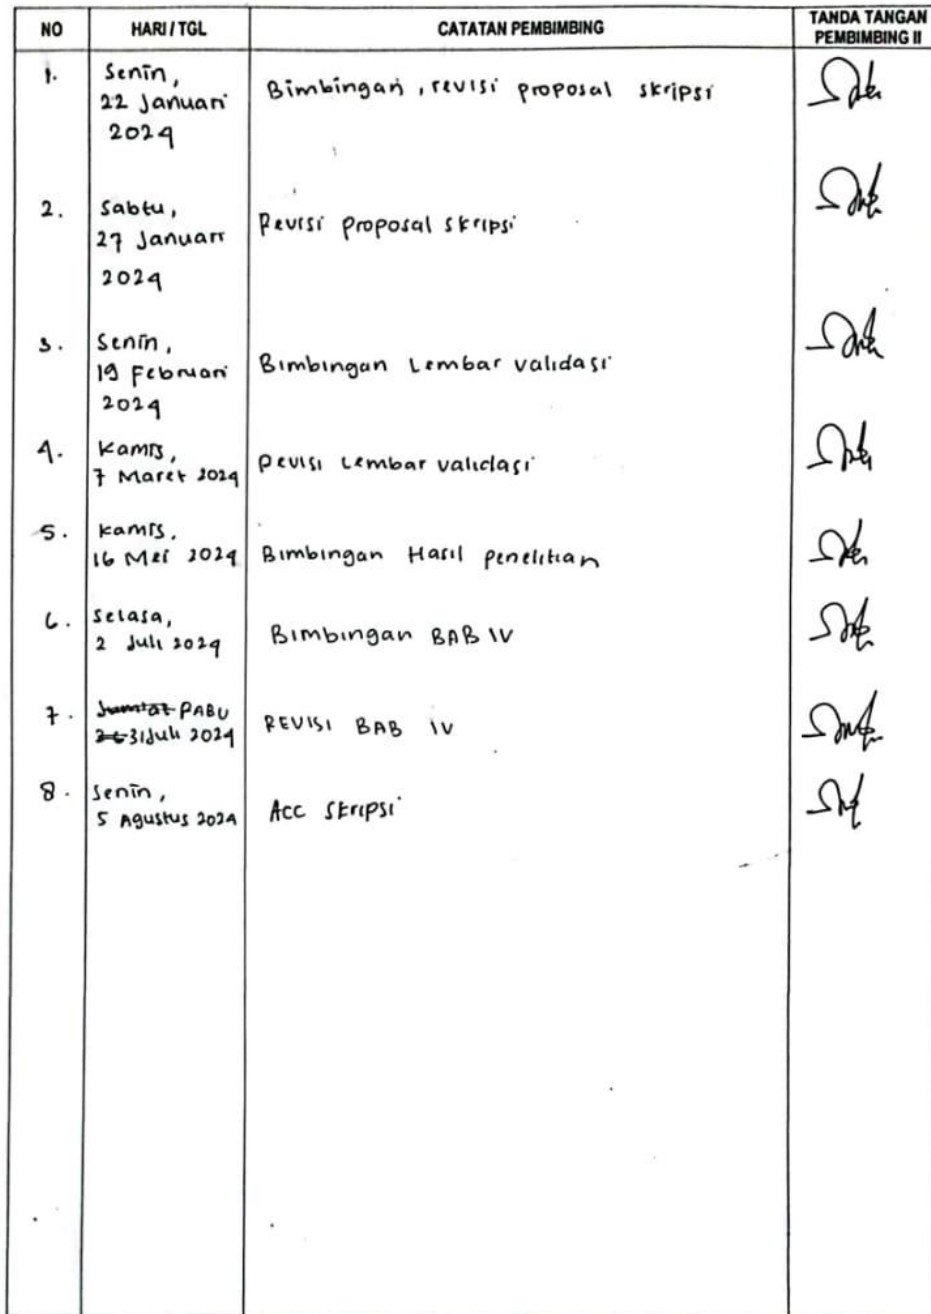 NO HARI / TGL CATATAN PEMBIMBING TANDA TANGAN PEMBIMBING II
1. Senin, 22 Januari 2024 Bimbingan, revisi proposal skripsi
2. Sabtu, 27 Januari 2024 Revisi proposal skripsi
3. Senin, 19 Februari 2024 Bimbingan Lembar validasi
4. Kamis, 7 Maret 2024 Revisi Lembar validasi
5. Kamis, 16 Mei 2024 Bimbingan Hasil penelitian
6. Selasa, 2 Juli 2024 Bimbingan BAB IV
7. Jum'at RABU 26 31 Juli 2024 REVISI BAB IV
8. Senin, 5 Agustus 2024 Acc Skripsi